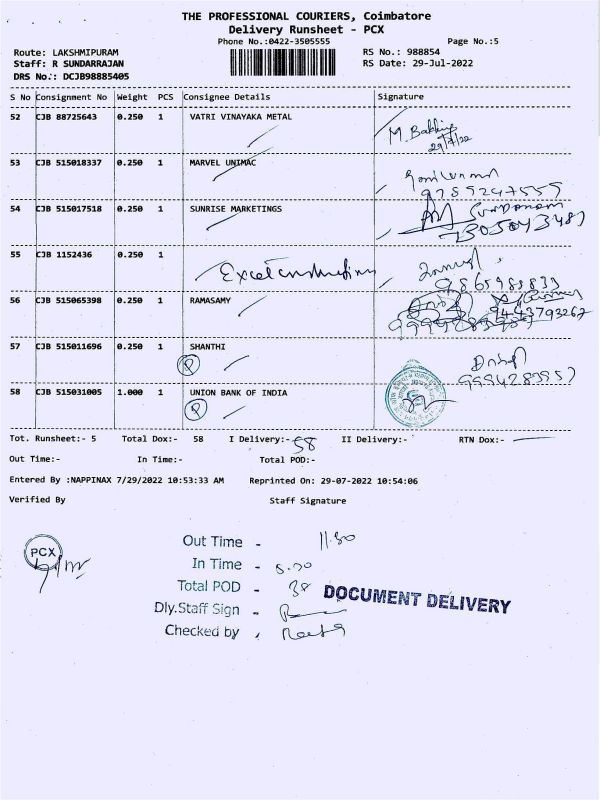 THE PROFESSIONAL COURIERS, Coimbatore
Delivery Runsheet - PCX
Phone No.:0422-3505555 Page No.:5
Route: LAKSHMIPURAM RS No.: 988854
Staff: R SUNDARRAJAN RS Date: 29-Jul-2022
DRS No.: DCJB98885405
S No Consignment No Weight PCS Consignee Details Signature
52 CJB 88725643 0.250 1 VATRI VINAYAKA METAL
29/7/22
53 CJB 515018337 0.250 1 MARVEL UNIMAC
9789247559
54 CJB 515017518 0.250 1 SUNRISE MARKETINGS
55 CJB 1152436 0.250 1
9865983833
56 CJB 515065398 0.250 1 RAMASAMY
9443793267
57 CJB 515011696 0.250 1 SHANTHI
P
58 CJB 515031005 1.000 1 UNION BANK OF INDIA
P
Tot. Runsheet:- 5 Total Dox:- 58 I Delivery:- 58 II Delivery:- RTN Dox:-
Out Time:- In Time:- Total POD:-
Entered By :NAPPINAX 7/29/2022 10:53:33 AM Reprinted On: 29-07-2022 10:54:06
Verified By Staff Signature
PCX
Out Time - 11.30
In Time -
Total POD - 38
DOCUMENT DELIVERY
Dly.Staff Sign -
Checked by